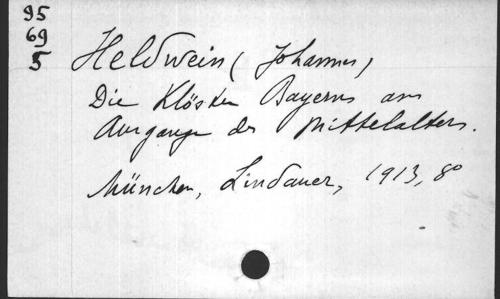 95
69
5
Heldwein (Johannes)
Die Klöster Bayerns am
Ausgange des Mittelalters.
München, Lindauer, 1913, 8º